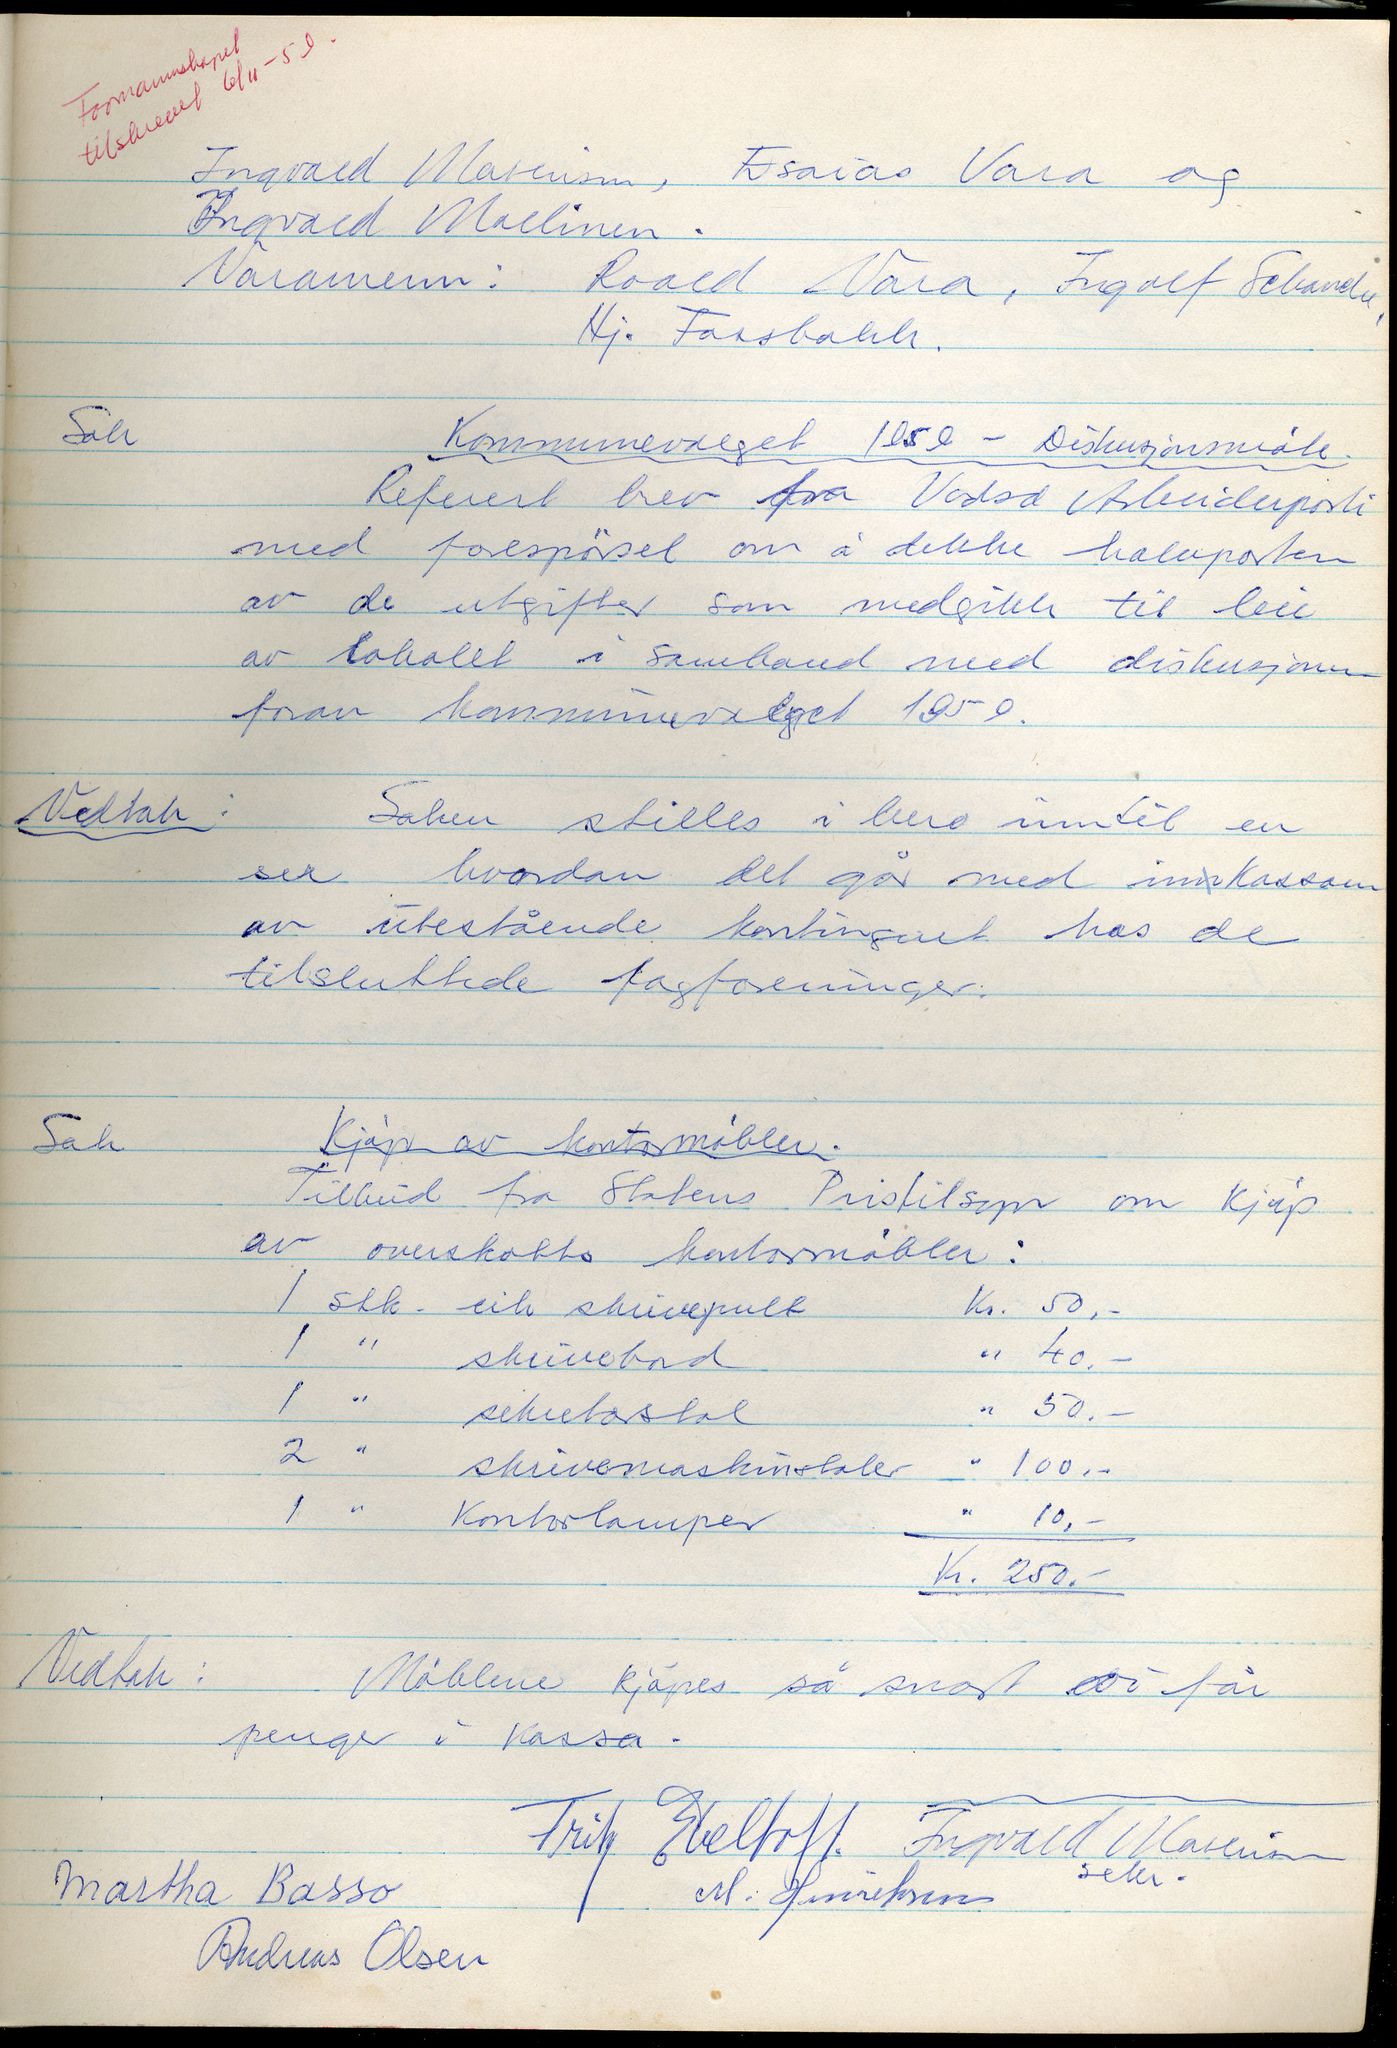 Formannskapet
tilskrevet 6/11-59.
Ingvald Mathisen, Esaias Vara og
Ingvald Mallinen.
Varamenn: Roald Vara, Ingolf Schanche,
Hj. Fossbakk.
Sak Kommunevalget 1959 - Diskusjonsmøte.
Referert brev fra Vadsø Arbeiderparti
med forespörsel om å dekke halvparten
av de utgifter som medgikk til leie
av lokalet i samband med diskusjonen
foran kommunevalget 1959.
Vedtak: Saken stilles i bero inntil en
ser hvordan det går med innkassam
av utestående kontingent hos de
tilsluttede fagforeninger.
Sak Kjöp av kontormöbler.
Tilbud fra Statens Pristilsyn om kjöp
av overskotts kontormöbler:
1 stk. eik skrivepult Kr. 50,-
1 " skrivebord " 40.-
1 " sekretærstol " 50.-
2 " skrivemaskinstoler " 100.-
1 " Kontorlamper " 10,-
Kr. 250.-
Vedtak: Möblene kjöpes så snart vi får
penger i kassa.
Fritz Ebeltoft. Ingvald Mathisen
sekr.
Martha Basso M. Henriksen
Andreas Olsen